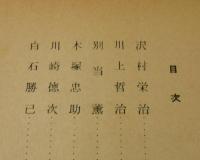 目次
沢村栄治
川上哲治
別当薫
木塚忠助
川崎徳次
白石勝巳